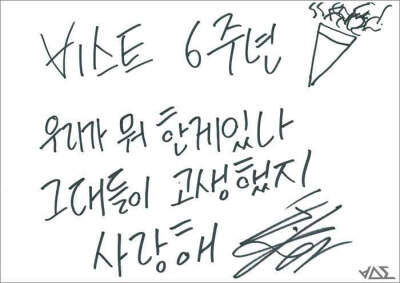 비스트 6주년
우리가 뭐 한게있나
그대들이 고생했지
사랑해